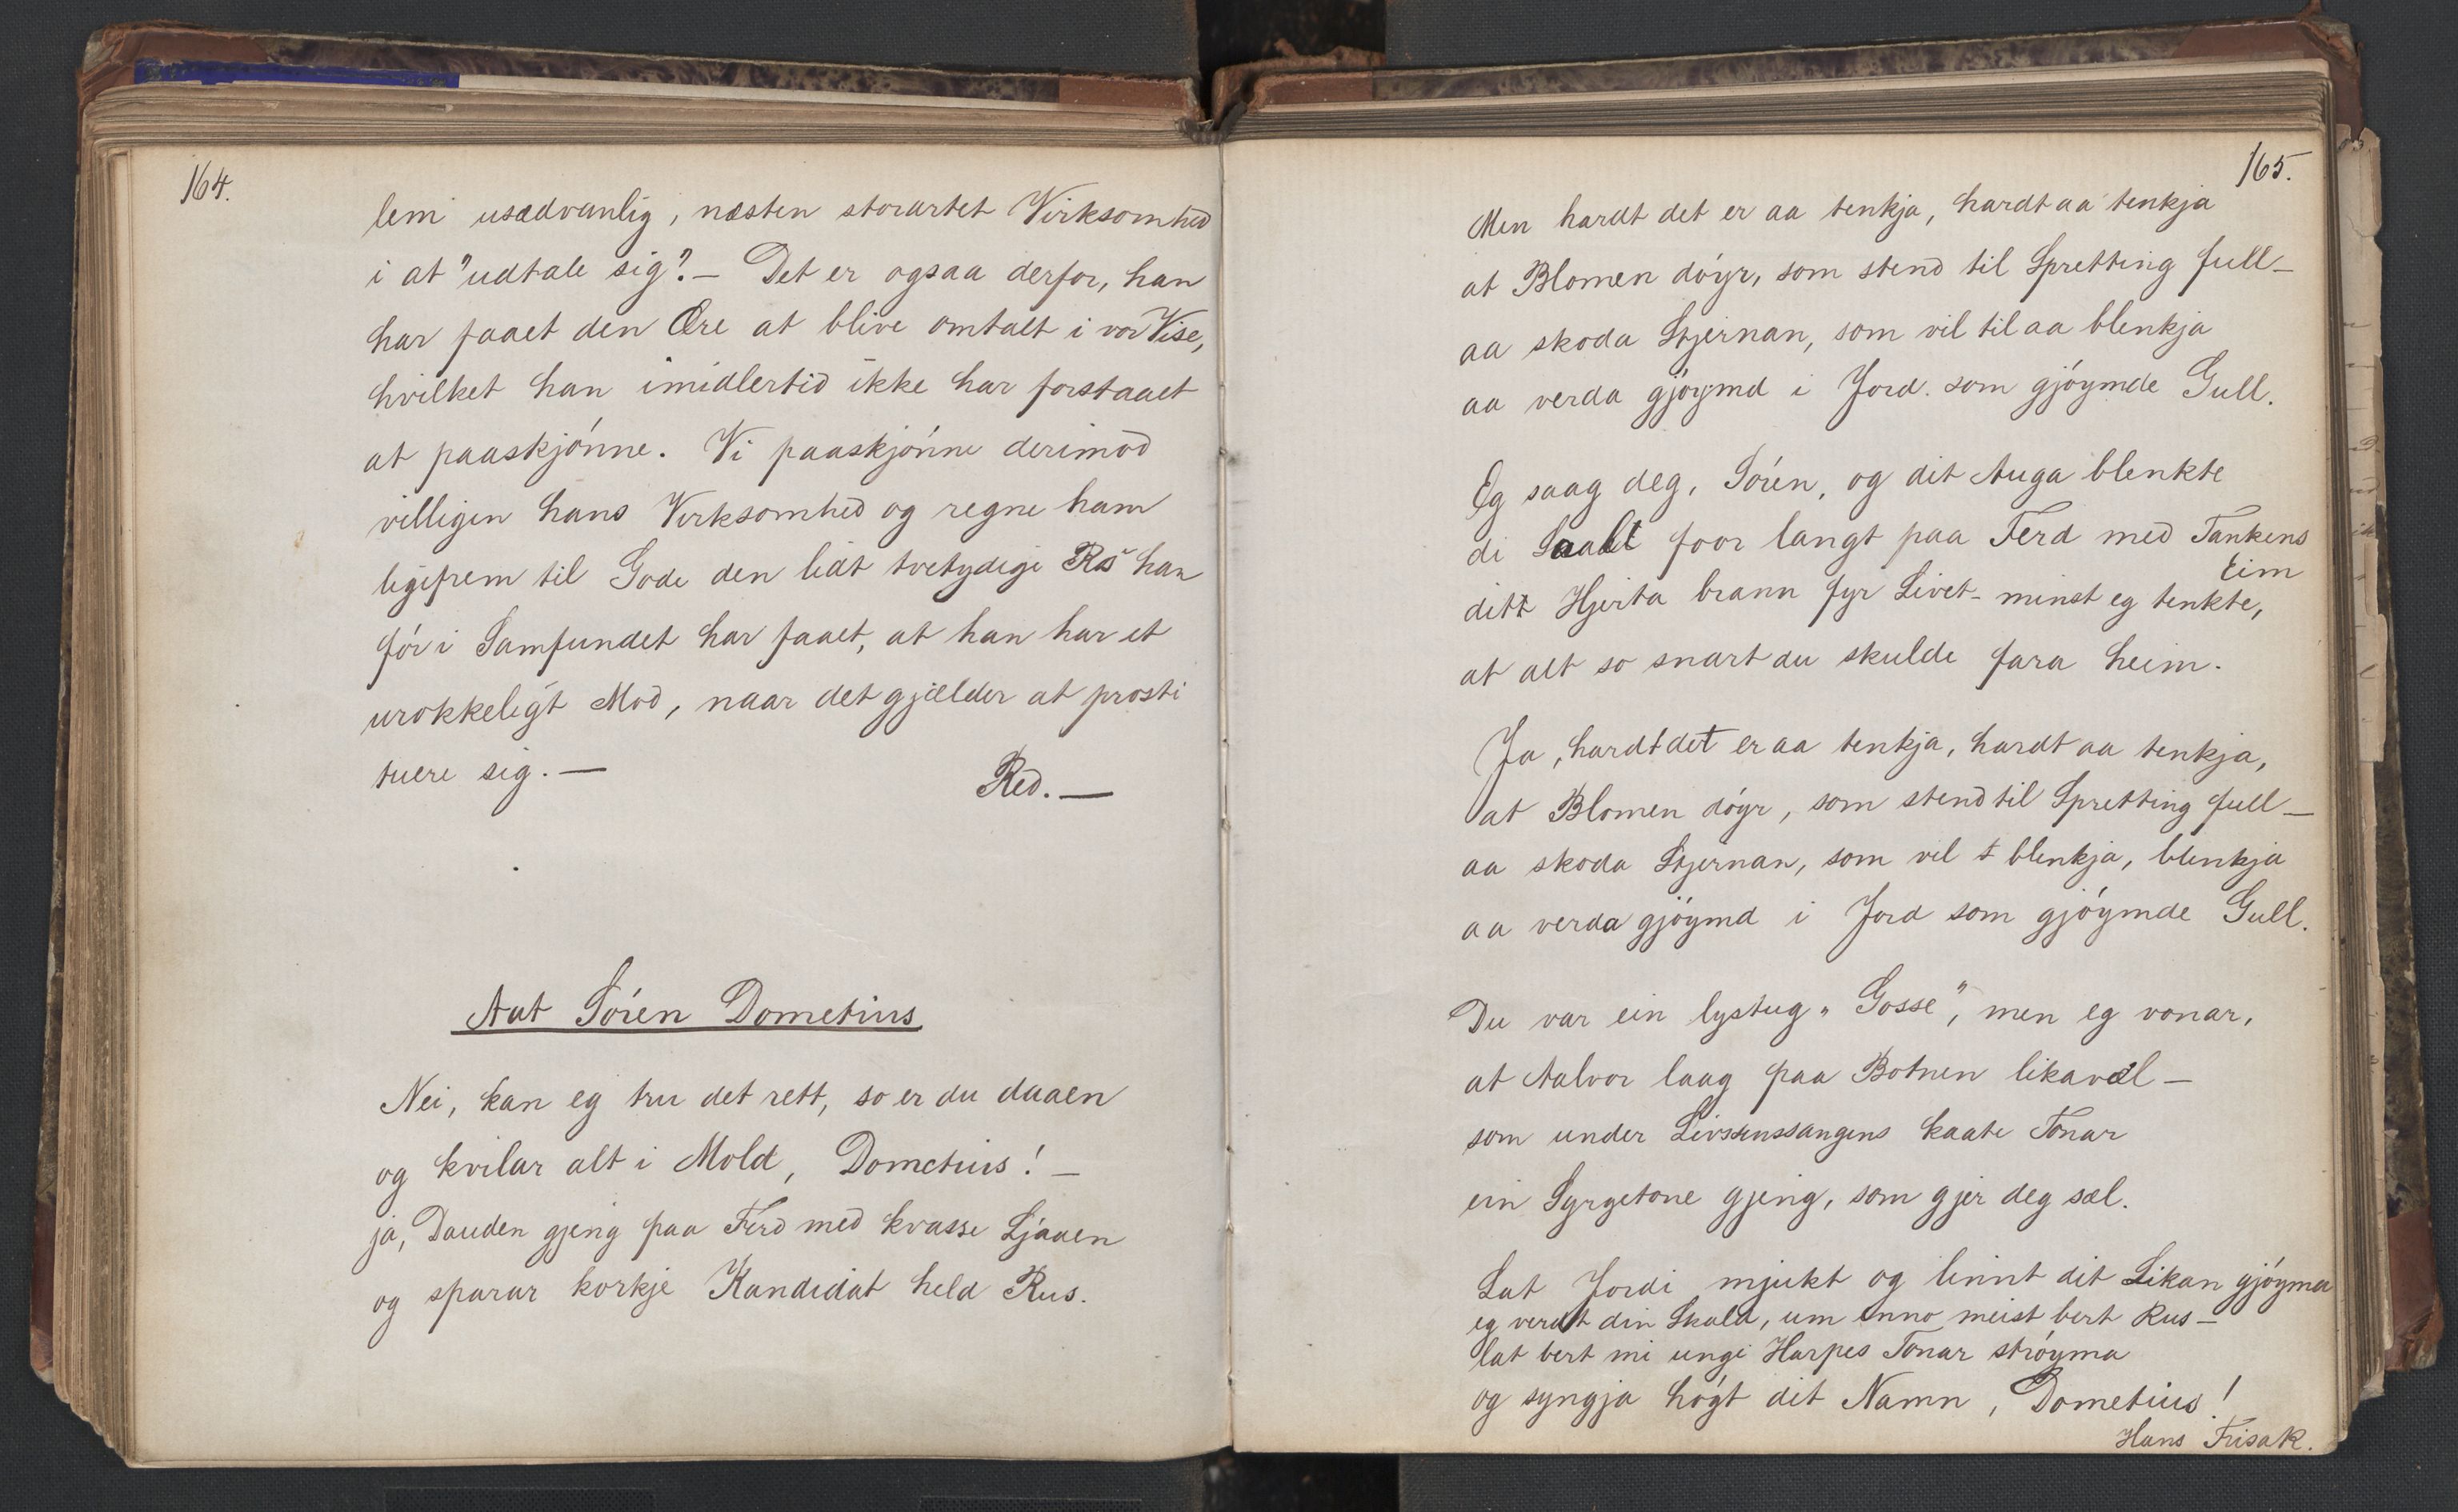 164.
lem usædvanlig, næsten storartet Virksomhed
i at "udtale sig"? — Det er ogsaa derfor, han
har faaet den Ære at blive omtalt i vor Vise,
hvilket han imidlertid ikke har forstaaet
at paaskjónne. Vi paaskjónne derimod
villigen hans Virksomhed og regne ham
ligefrem til Gode den lidt tvetydige Ros han
fór i Samfundet har faaet, at han har et
urokkeligt Mod, naar det gjælder at prosti
tuere sig. —
Red. —
Aat Sóren Dometius
Nei, kan eg tru det rett, so er du daaen
og kvilar alt i Mold, Dometius! —
ja, Dauden gjeng paa Ferd med kvasse Ljaaen
og sparar korkje Kandidat held Rus.
165.
Men hardt det er aa tenkja, hardt aa tenkja
at Blomen dóyr, som stend til Spretting full —
aa skoda Stjernan, som vil til aa blenkja
aa verda gjóymd i Jord som gjóymde Gull.
Eg saag deg, Sóren, og dit Auga blenkte
di Saal foor langt paa Ferd med Tankens
Eim
ditt Hjerta brann fyr Livet – minst eg tenkte,
at alt so snart du skulde fara heim.
Ja, hardt det er aa tenkja, hardt aa tenkja,
at Blomen dóyr, som stend til Spretting full —
aa skoda Stjernan, som vil t blenkja, blenkja
aa verda gjóymd i Jord som gjóymde Gull.
Du var ein lystug „Gosse", men eg vonar,
at Aalvor laag paa Botnen likavæl —
som under Livssenssangens kaate Tonar
ein Syrgetone gjeng, som gjer deg sæl.
Lat Jordi mjukt og linnt dit Likan gjóyma
eg verdt din Skald, um enno meist bert Rus —
lat bert mi unge Harpes Tonar stróyma
og syngja hógt dit Namn, Dometius!
Hans Frisak.